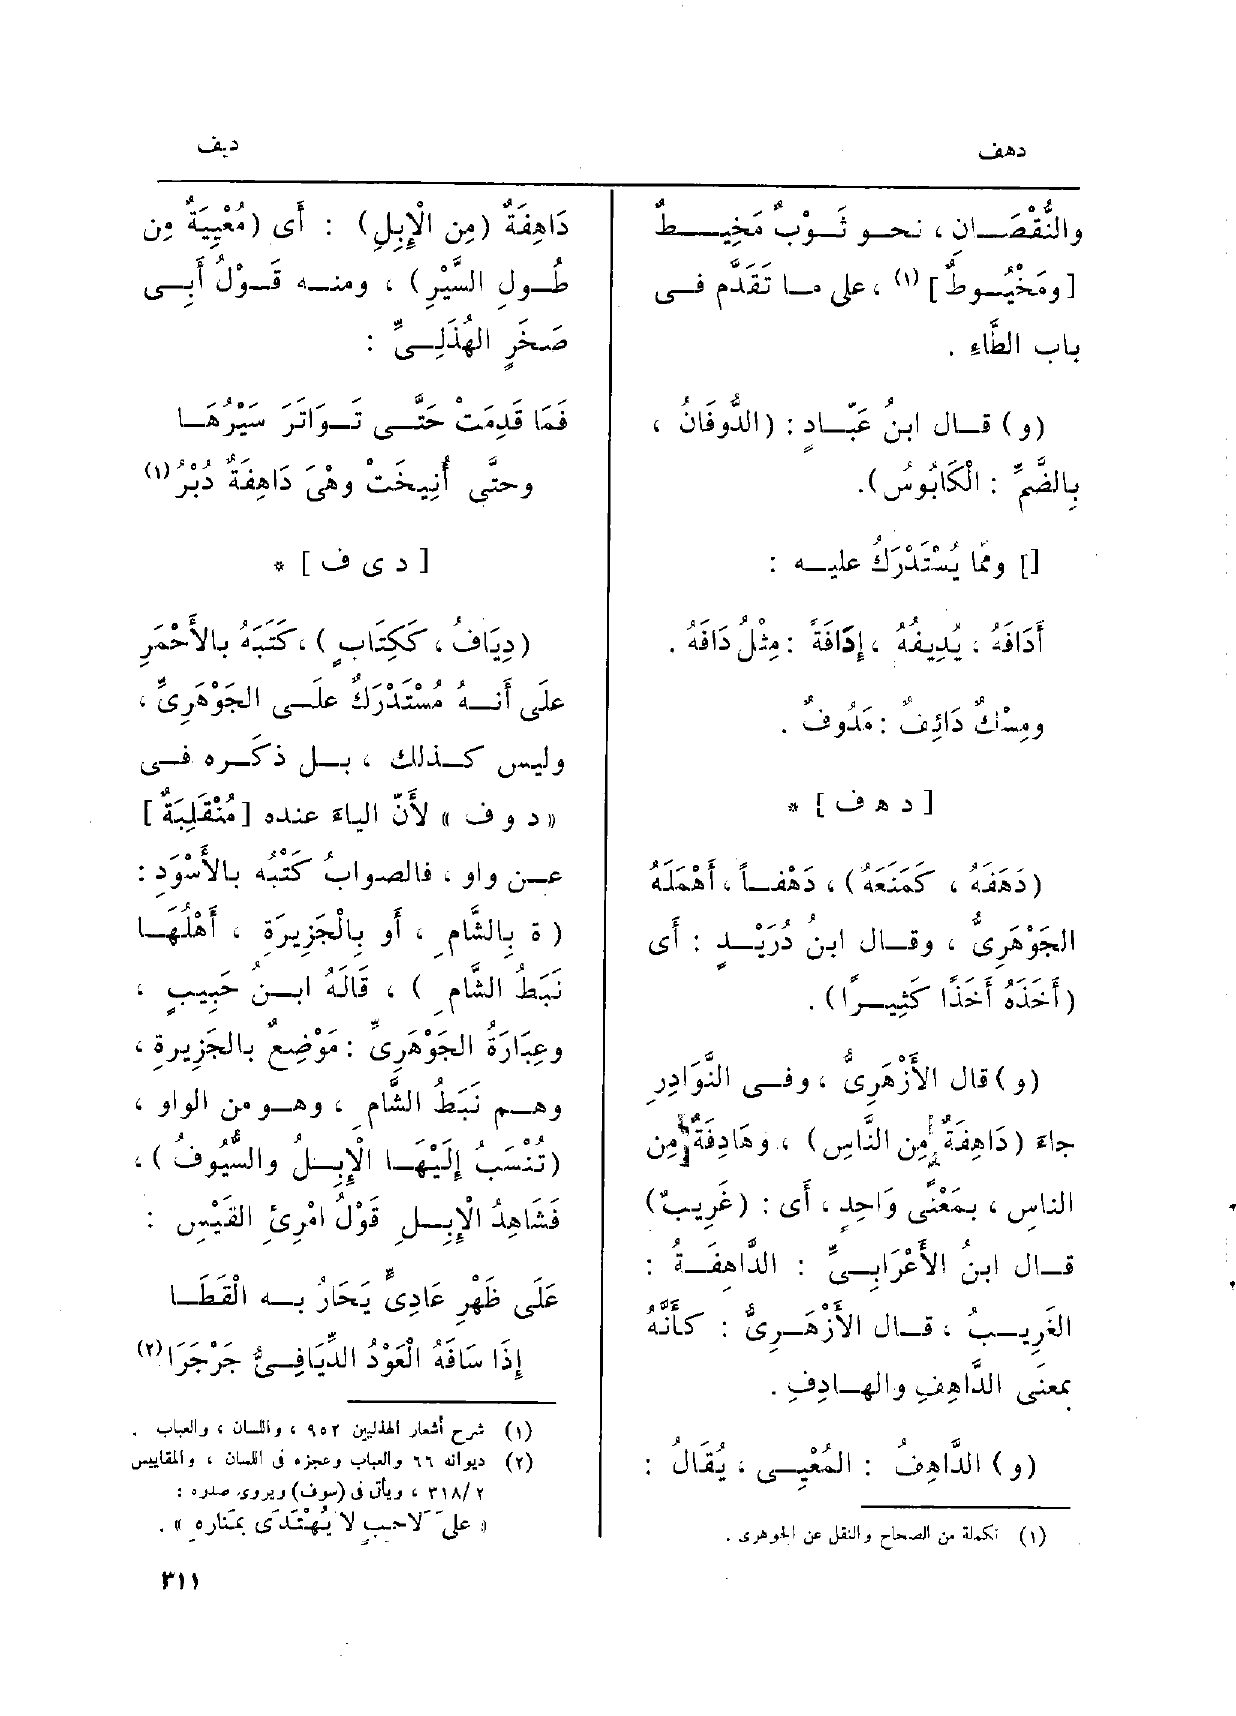 دهف
ديف
والنُّقْصَـان ، نحـو ثَـوْبٌ مَخِيـطٌ
[ومَخْيُـوطٌ] (١) ، على مـا تَقَدَّم فـى
باب الطَّاءِ .
(و) قـال ابنُ عَبّـادٍ : (الدُّوفَانُ ،
بِالضَّمِّ : الْكَابُوسُ).
[] ومّما يُسْتَدْرَكُ عليـه :
أَدَافَهُ ، يُدِيفُهُ ، إِدَافَةً : مِثْلُ دَافَهُ .
ومِسْكٌ دَائِفٌ : مَدُوفٌ .
[ د ه ف ] *
(دَهَفَهُ ، كَمَنَعَهُ) ، دَهْفـاً ، أَهْمَلَهُ
الجَوْهَرِىُّ ، وقـال ابنُ دُرَيْـدٍ : أَى
(أَخَذَهُ أَخَذًا كَثِيـرًا) .
(و) قال الأَزْهَرِىُّ ، وفـى النَّوَادِرِ
جاءَ (دَاهِفَةٌ مِن النَّاسِ) ، وهَادِفَةٌ مِن
الناسِ ، بمَعْنًى وَاحِدٍ ، أَى : (غَرِيبٌ)
قـال ابنُ الأَعْرَابِـىِّ : الدَّاهِفَـةُ :
الغَرِيـبُ ، قـال الأَزْهَـرِىُّ : كأَنَّهُ
بمعنَى الدَّاهِفِ والهـادِفِ .
(و) الدَّاهِفُ : المُعْيِـى ، يُقَالُ :
(١) تكملة من الصحاح والنقل عن الجوهرى .
دَاهِفَةٌ (مِن الْإِبِلِ) : أَى (مُعْيِيَةٌ مِن
طُـولِ السَّيْرِ) ، ومنـه قَـوْلُ أَبِـى
صَخْرٍ الهُذَلِـىِّ :
فَمَا قَدِمَتْ حَتَّـى تَـوَاتَرَ سَيْرُهَـا
وحتَّى أُنِيخَتْ وهْىَ دَاهِفَةٌ دُبْرُ (١)
[ د ى ف ] *
(دِيَافُ ، ككِتَابٍ ) ، كَتَبَهُ بالأَحْمَرِ
علَى أَنـهُ مُسْتَدْرَكٌ علَـى الجَوْهَرِىِّ ،
وليس كـذلك ، بـل ذكَـره فـى
« د و ف » لأَنّ الياءَ عنده [مُنْقَلِبَةٌ]
عـن واو ، فالصوابُ كَتْبُه بالأَسْوَدِ :
( ة بِالشَّامِ ، أو بِالْجَزِيرَةِ ، أَهْلُهَـا
نَبَطُ الشَّامِ ) ، قَالَهُ ابـنُ حَبِيبٍ ،
وعِبَارَةُ الجَوْهَرِىِّ : مَوْضِعٌ بالجَزِيرةِ ،
وهـم نَبَطُ الشَّامِ ، وهـو من الواو ،
(تُنْسَبُ إِلَيْهَـا الْإِبِـلُ والسُّيُوفُ ) ،
فَشَاهِدُ الْإِبِـلِ قَوْلُ امْرِئِ القَيْسِ :
عَلَى ظَهْرِ عَادِىٍّ يَحَارُ بـه الْقَطَـا
إِذَا سَافَهُ الْعَوْدُ الدِّيَافِـىُّ جَرْجَرَا (٢)
(١) شرح أشعار الهذليين ٩٥٢ ، واللسان ، والعباب .
(٢) ديوانه ٦٦ والعباب وعجزه فى اللسان ، والمقاييس
٣١٨/٢ ، ويأتى فى (سوف) ويروى صدره :
« على لاحبٍ لا يُهْتَدَى بمَنَارهِ » .
٣١١